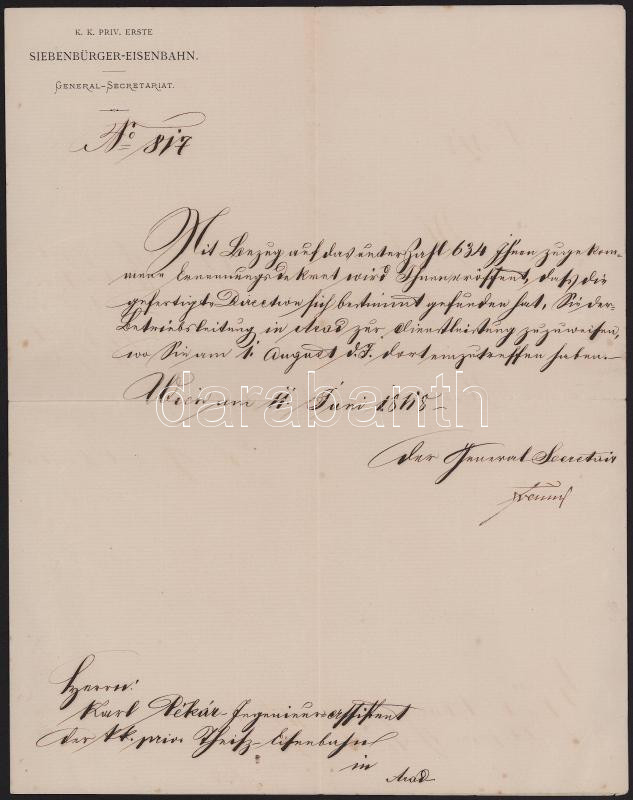 K. K. PRIV. ERSTE
SIEBENBÜRGER-EISENBAHN.
GENERAL-SECRETARIAT.
No 817
Mit Bezug auf das unter Zahl 634 Ihnen zugekom-
mene Ernennungsdekret wird Ihnen eröffnet, dass die
gefertigte Direction sich bestimmt gefunden hat, Sie der
Betriebsleitung in Arad zur Dienstleistung zuzuweisen,
wo Sie am 1. August d. J. dort einzutreffen haben.-
Wien am Juni 1868
darabanth
Der General-Secretair
Herrn:
Karl Pékár Ingenieur-Assistent
der kk. priv. Theisz-Eisenbahn
in
Arad